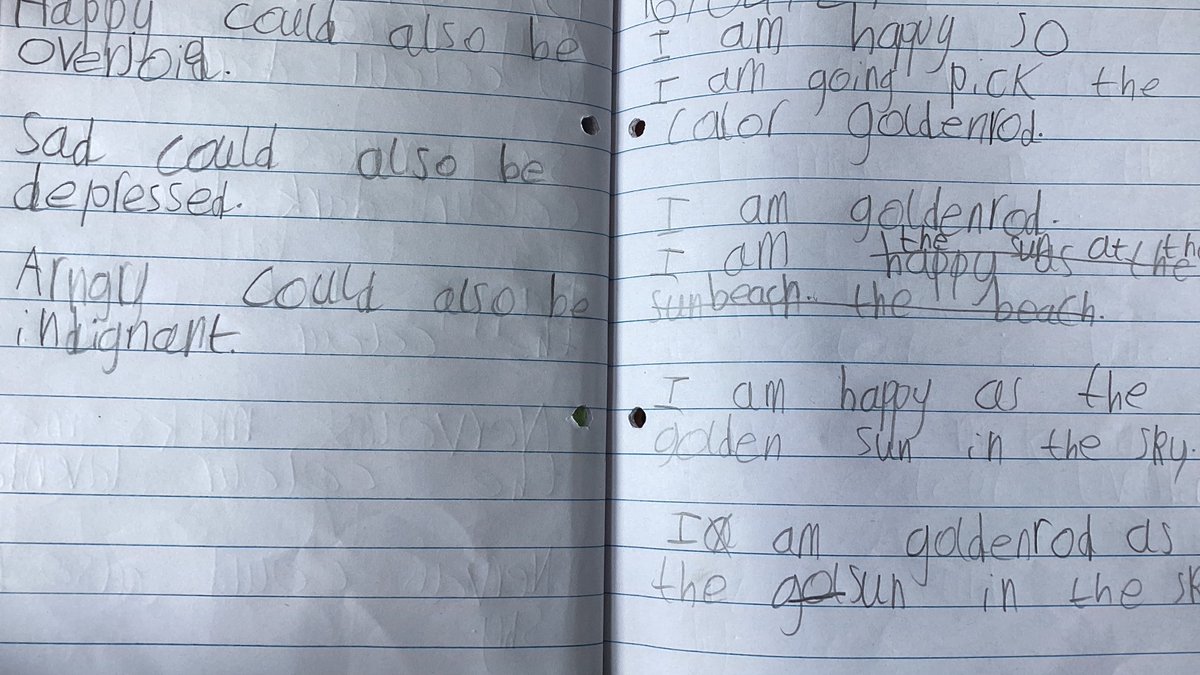 Happy could also be
overjoid.
Sad could also be
depressed.
Aryngry could also be
indignant.
I am happy so
I am going pick the
color goldenrod.
I am goldenrod.
the sun at the
I am happy as the
sunbeach. the beach.
I am happy as the
golden sun in the sky.
I am goldenrod as
the gotsun in the sk